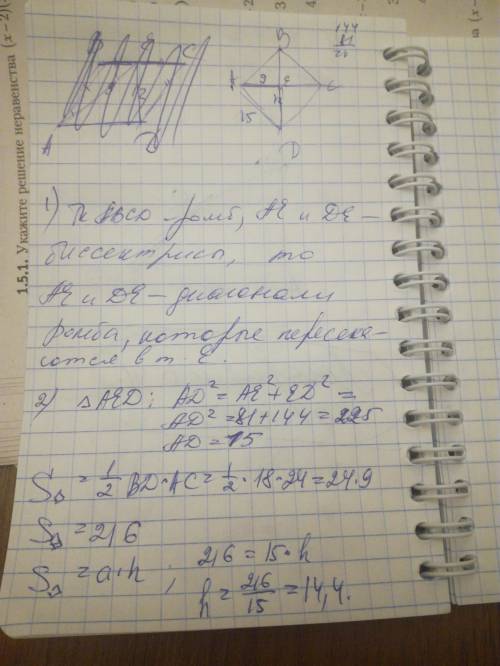 1.5.1. Укажите решение неравенства (x−2)(
144
81
B
A
9
E
C
12
15
D
A
D
1) Тк ABCD - ромб, AE и DE -
биссектрисы, то
AE и DE - диагонали
ромба, которые пересека-
ются в т. E.
2) △AED: AD² = AE² + ED² =
AD² = 81 + 144 = 225
AD = 15
S = 1/2 BD · AC = 1/2 · 18 · 24 = 24 · 9
S = 216
S = a · h ; 216 = 15 · h
h = 216/15 = 14,4.